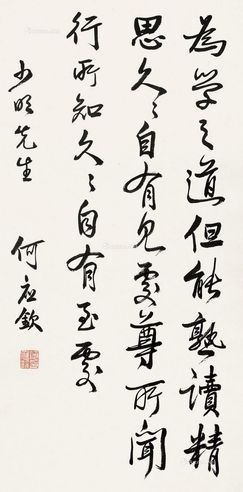 為学之道但能熟讀精
思久々自有見處尊所聞
行所知久々自有至處
少明先生
何应欽